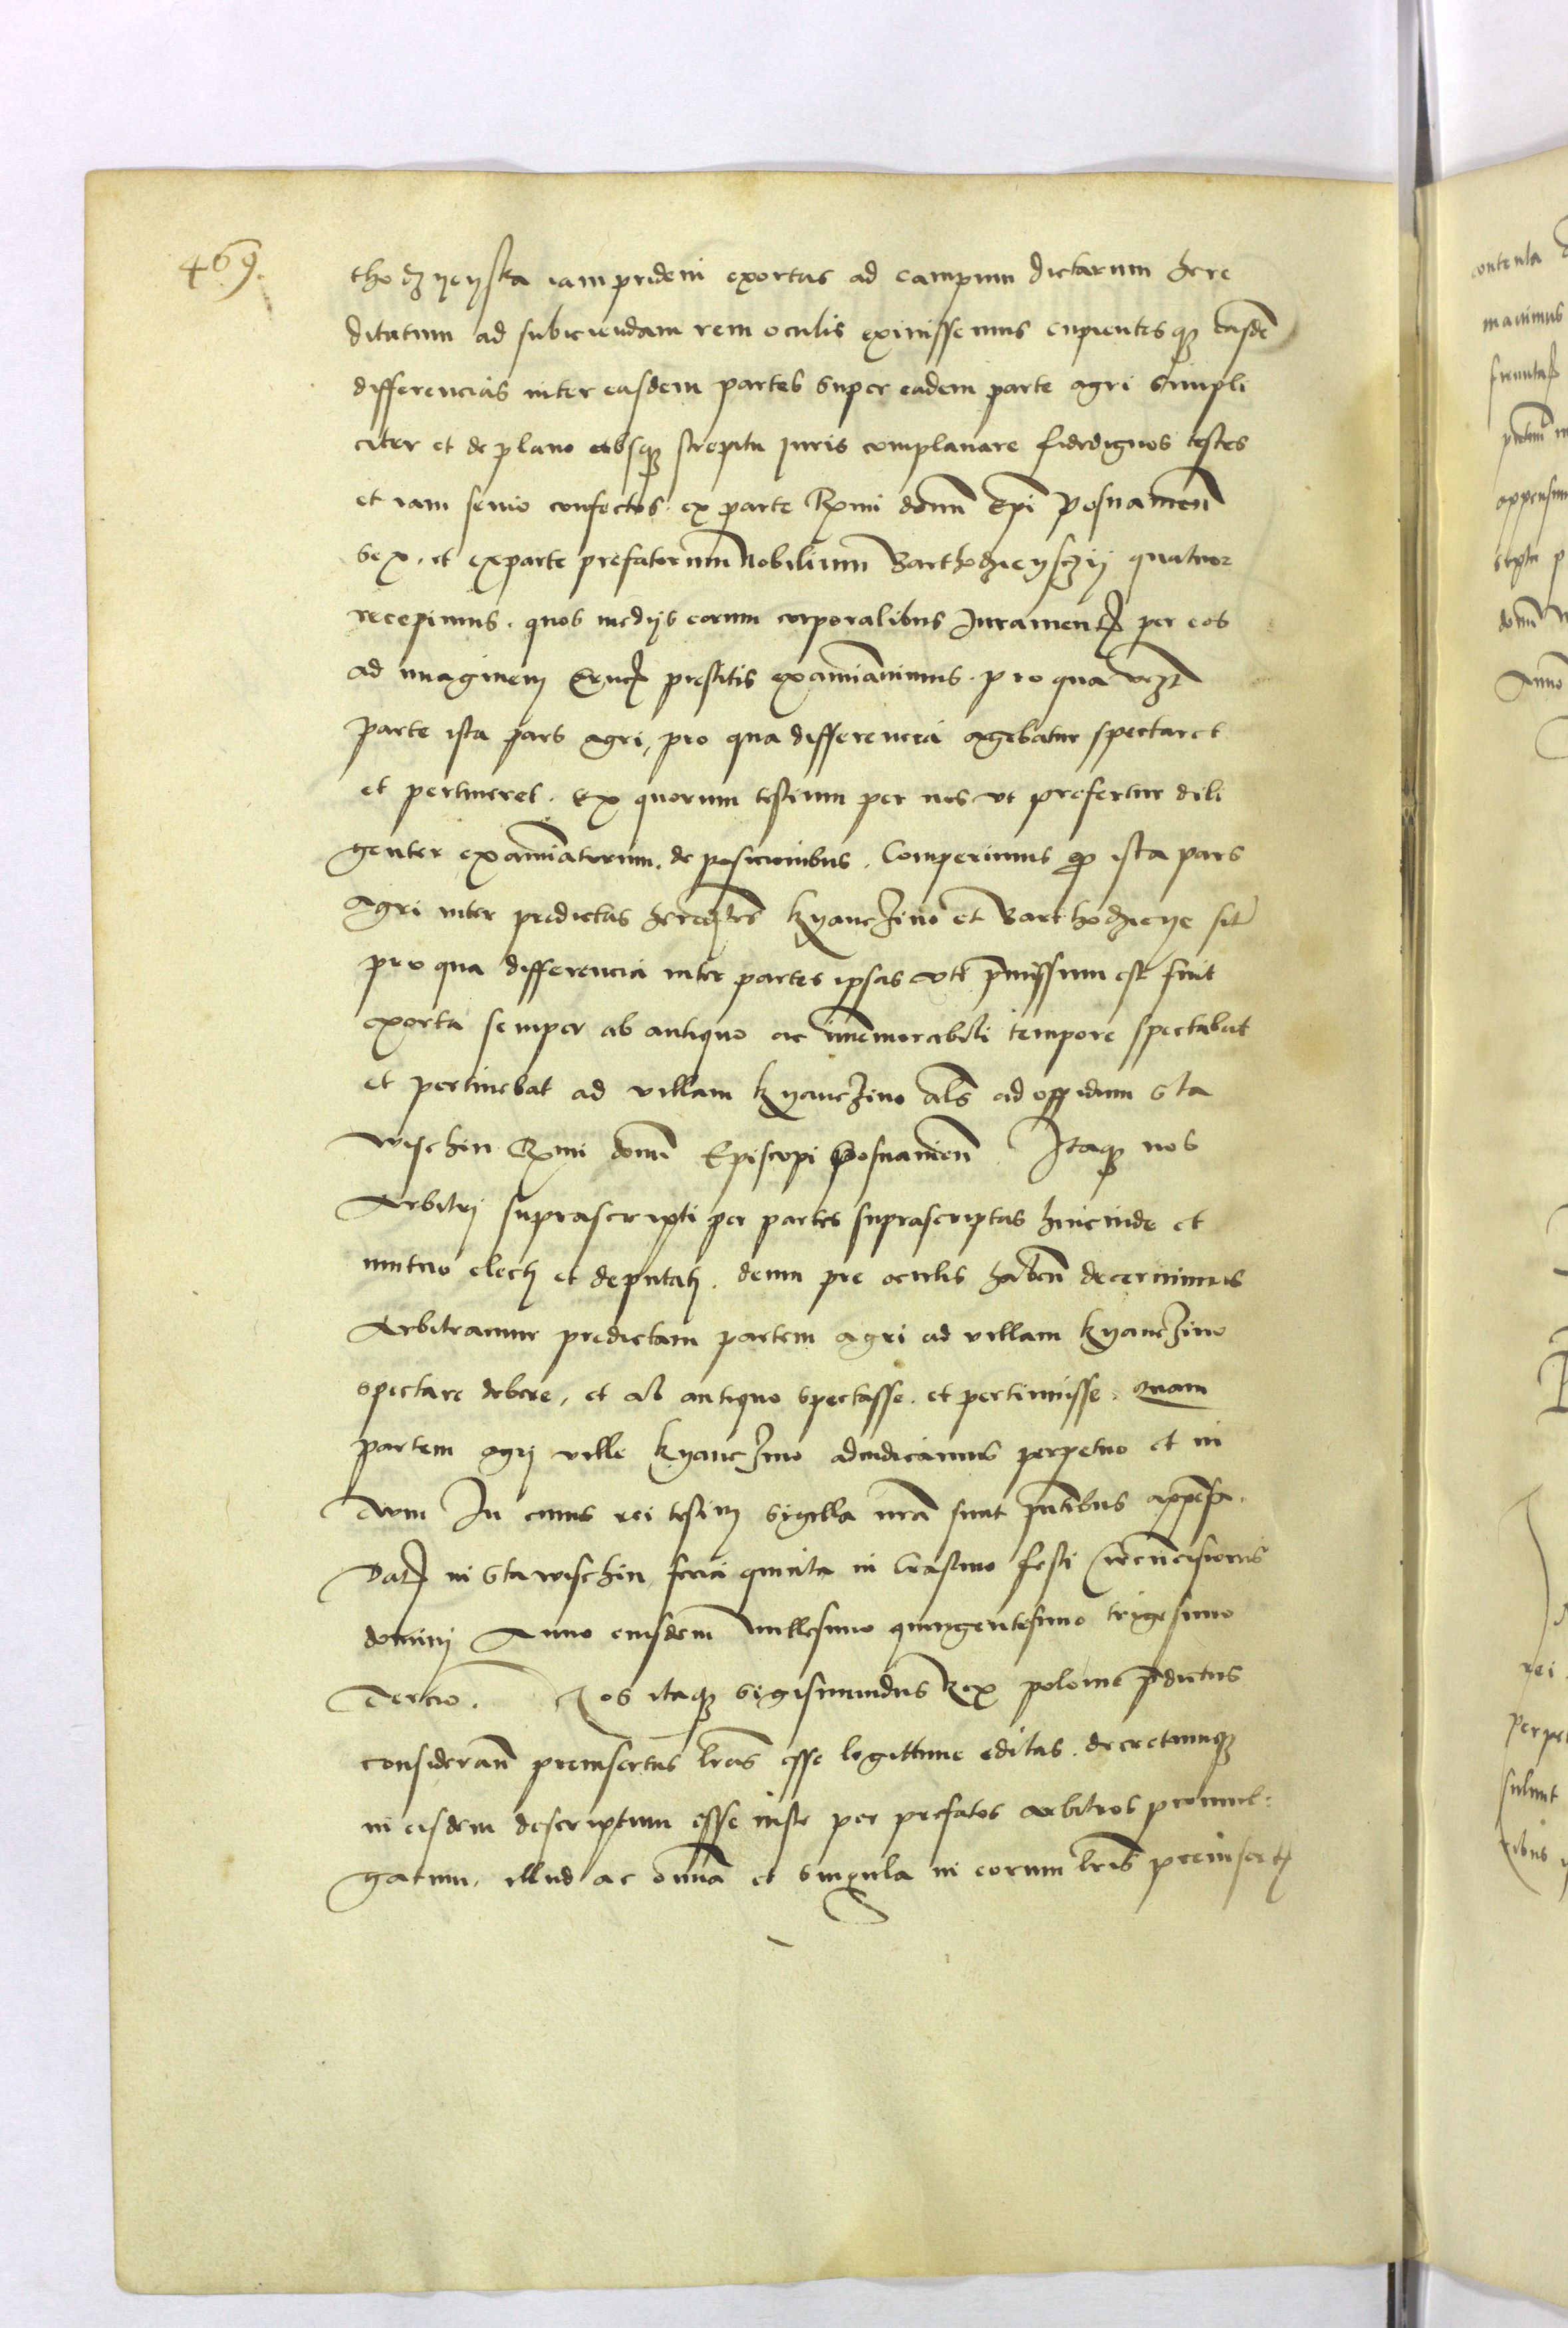 469.
thodzyeyska iampridem exortas ad campum dictarum here
ditatum ad subiciendam rem oculis exivissemus cupientesq₃ easdē
differencias inter easdem partes super eadem parte agri simpli
citer et de plano absq₃ strepitu iuris complanare fidedignos testes
et iam senio confectos ex parte Rmi domī Epī Posnamen̄
sex. et exparte prefatorum Nobilium Barthodzieysczÿ quatuor
recepimus. quos medÿs eorum corporalibus Jurament per eos
ad imaginem Cruc prestitis examīavimus. pro qua vcz
parte ista pars agri, pro qua differencia agebatur spectaret
et pertineret. Ex quorum testium per nos vt prefertur dili
genter examīatorum. deposicionibus. Comperimus ꝙ ista pars
Agri inter predictas heredtēs Kyanczino et Barthodzieye sit
pro qua differencia inter partes ipsas vti p̄missum est fuit
exorta semper ab antiquo ac im̄emorabili tempore spectabat
et pertinebat ad villam Kyanczino als̄ ad oppidum Sta
wischin Rmi domī Episcopi Posnamien̄ Itaq₃ nos
Arbitrj suprascripti per partes suprascriptas hincinde et
mutuo electj et deputatj. deum pre oculis haben̄ decernimus
Arbitramur predictam partem agri ad villam Kyanczino
spectare debere, et ab antiquo spectasse. et pertinuisse. Quam
partem agrj ville Kyanczino adiudicamus perpetuo et in
evum In cuius rei testim̄ sigilla nr̄a sunt pn̄tibus appēsa.
Dat in Stawischin feria quinta in Crastino festi Circūcisionis
dominj Anno eiusdem Millesimo quingentesimo trigesimo
Tercio. Nos itaq₃ Sigismundus Rex polonie p̄dictus
consideran̄ preinsertas lr̄as esse legittime editas. decretumq₃
in eisdem descriptum esse iuste per prefatos arbitros promul:
gatum, illud ac omnīa et singula in eorum lr̄is preinsert